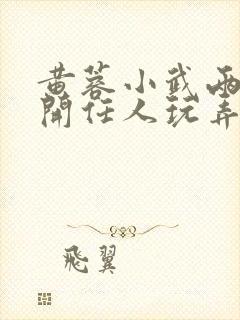 黄蓉小武兩
開任人玩弄
飛翼